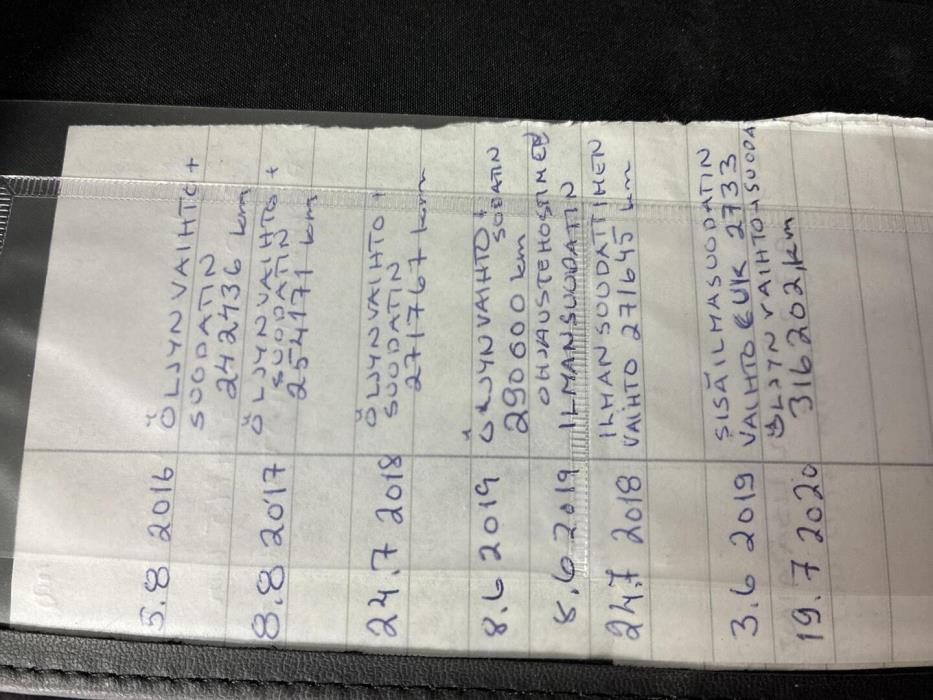 5.8 2016 ÖLJYN VAIHTO +
SUODATIN
242436 km
8.8 2017 ÖLJYN VAIHTO +
SUODATIN
254171 km
24.7 2018 ÖLJYN VAIHTO +
SUODATIN
271767 km
8.6 2019 ÖLJYN VAIHTO+
SODATIN
290600 km
OHJAUSTEHOSTIMEN
8.6 2019 ILMANSUODATIN
24.7 2018 ILMANSUODATTIMEN
VAIHTO 271645 km
SISÄILMASUODATIN
3.6 2019 VAIHTO CUK 2733
19.7 2020 ÖLJYN VAIHTO+SUODA
316202 km